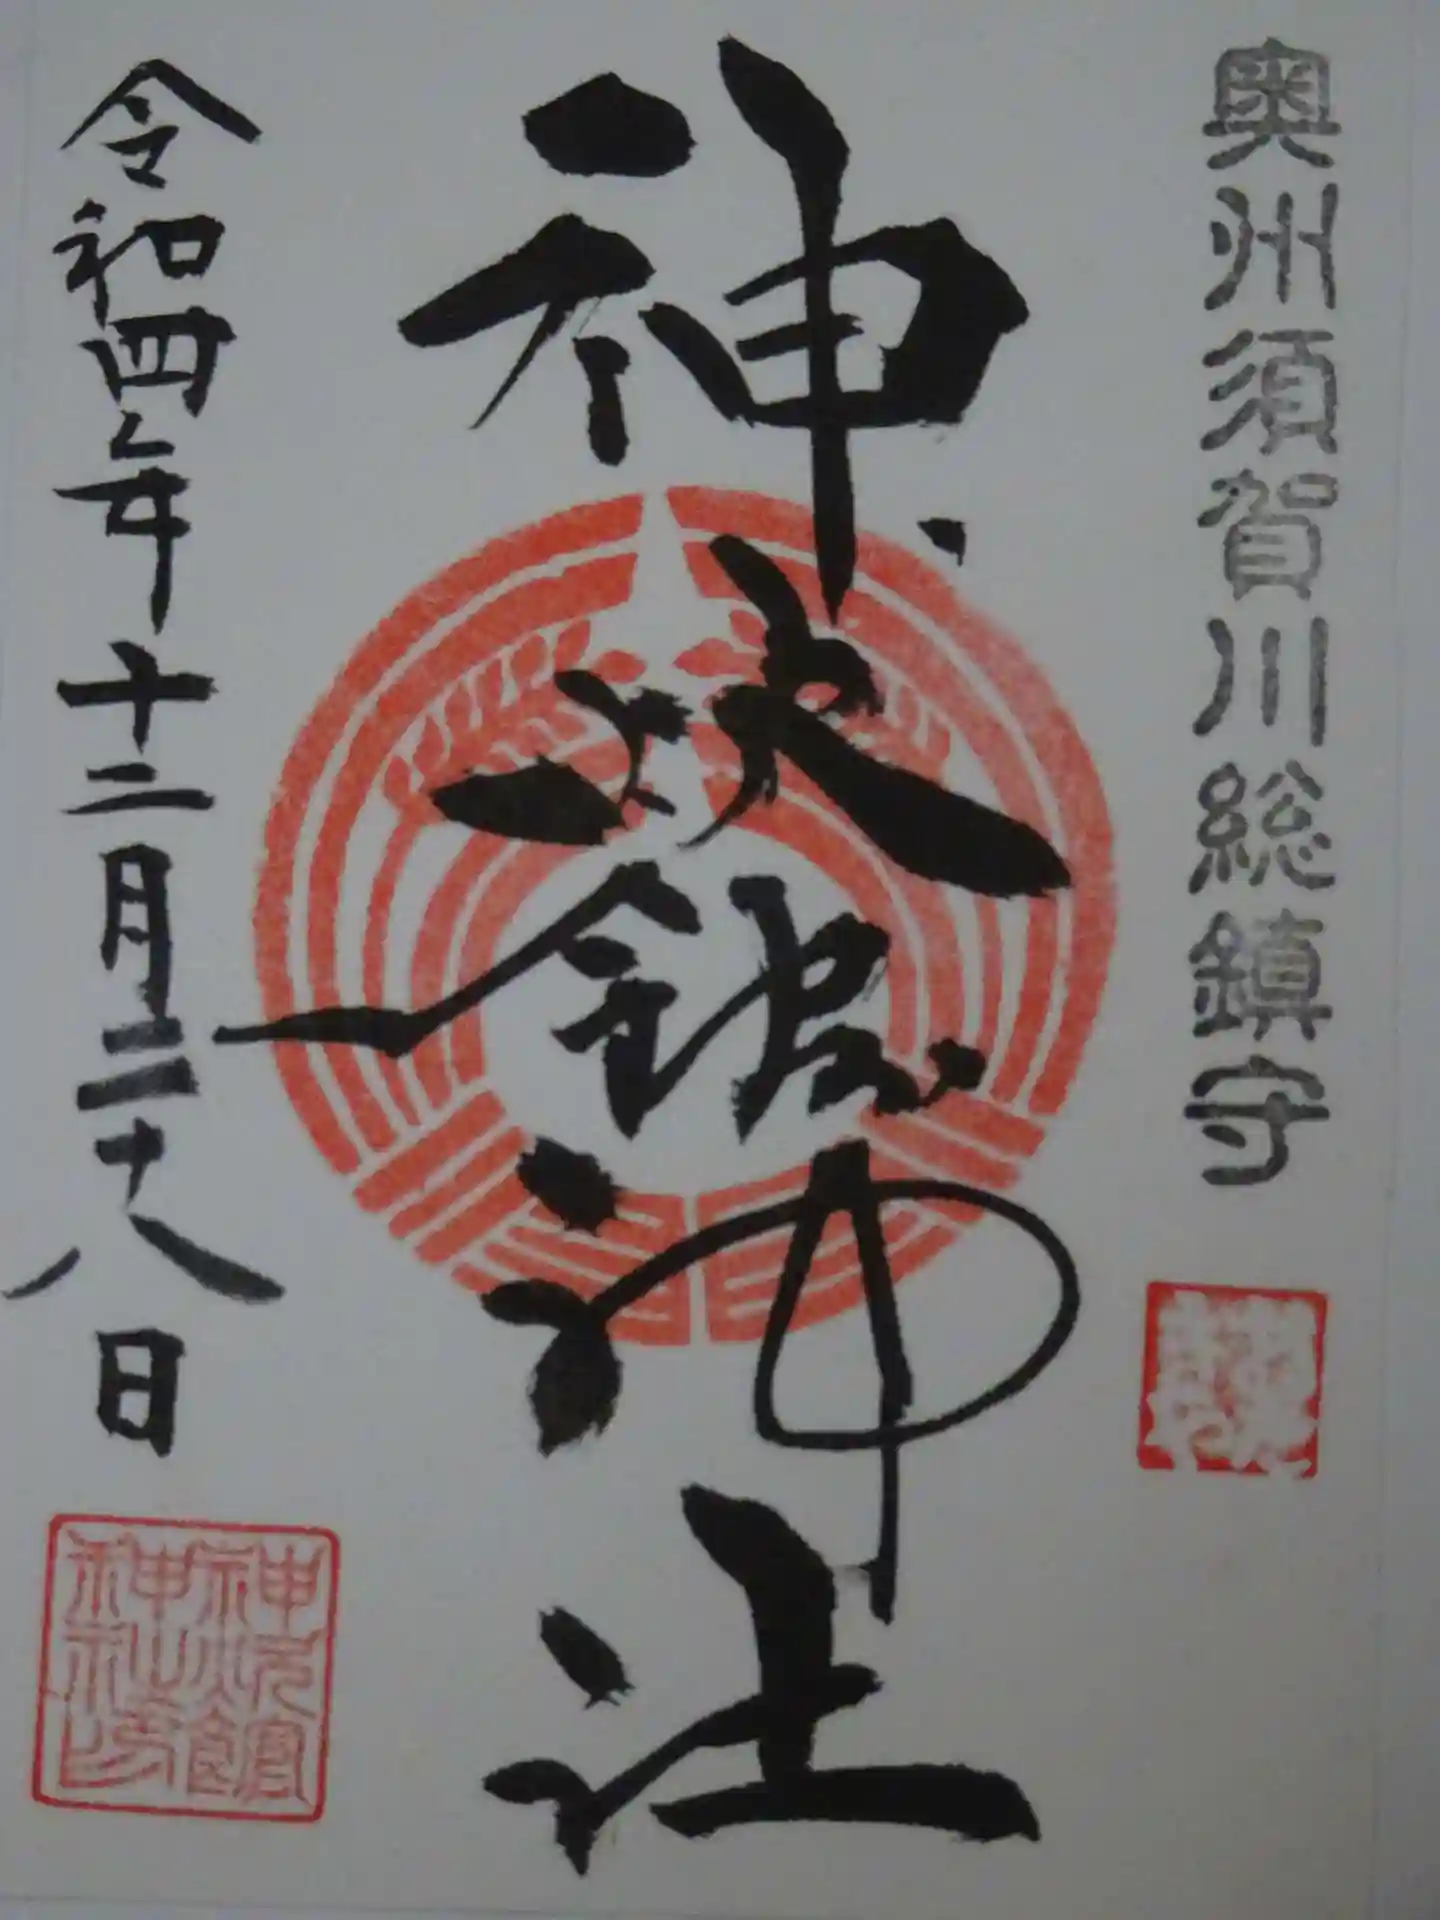 奥州須賀川総鎮守
神炊館神社
令和四年十二月二十八日
神炊館
神社印